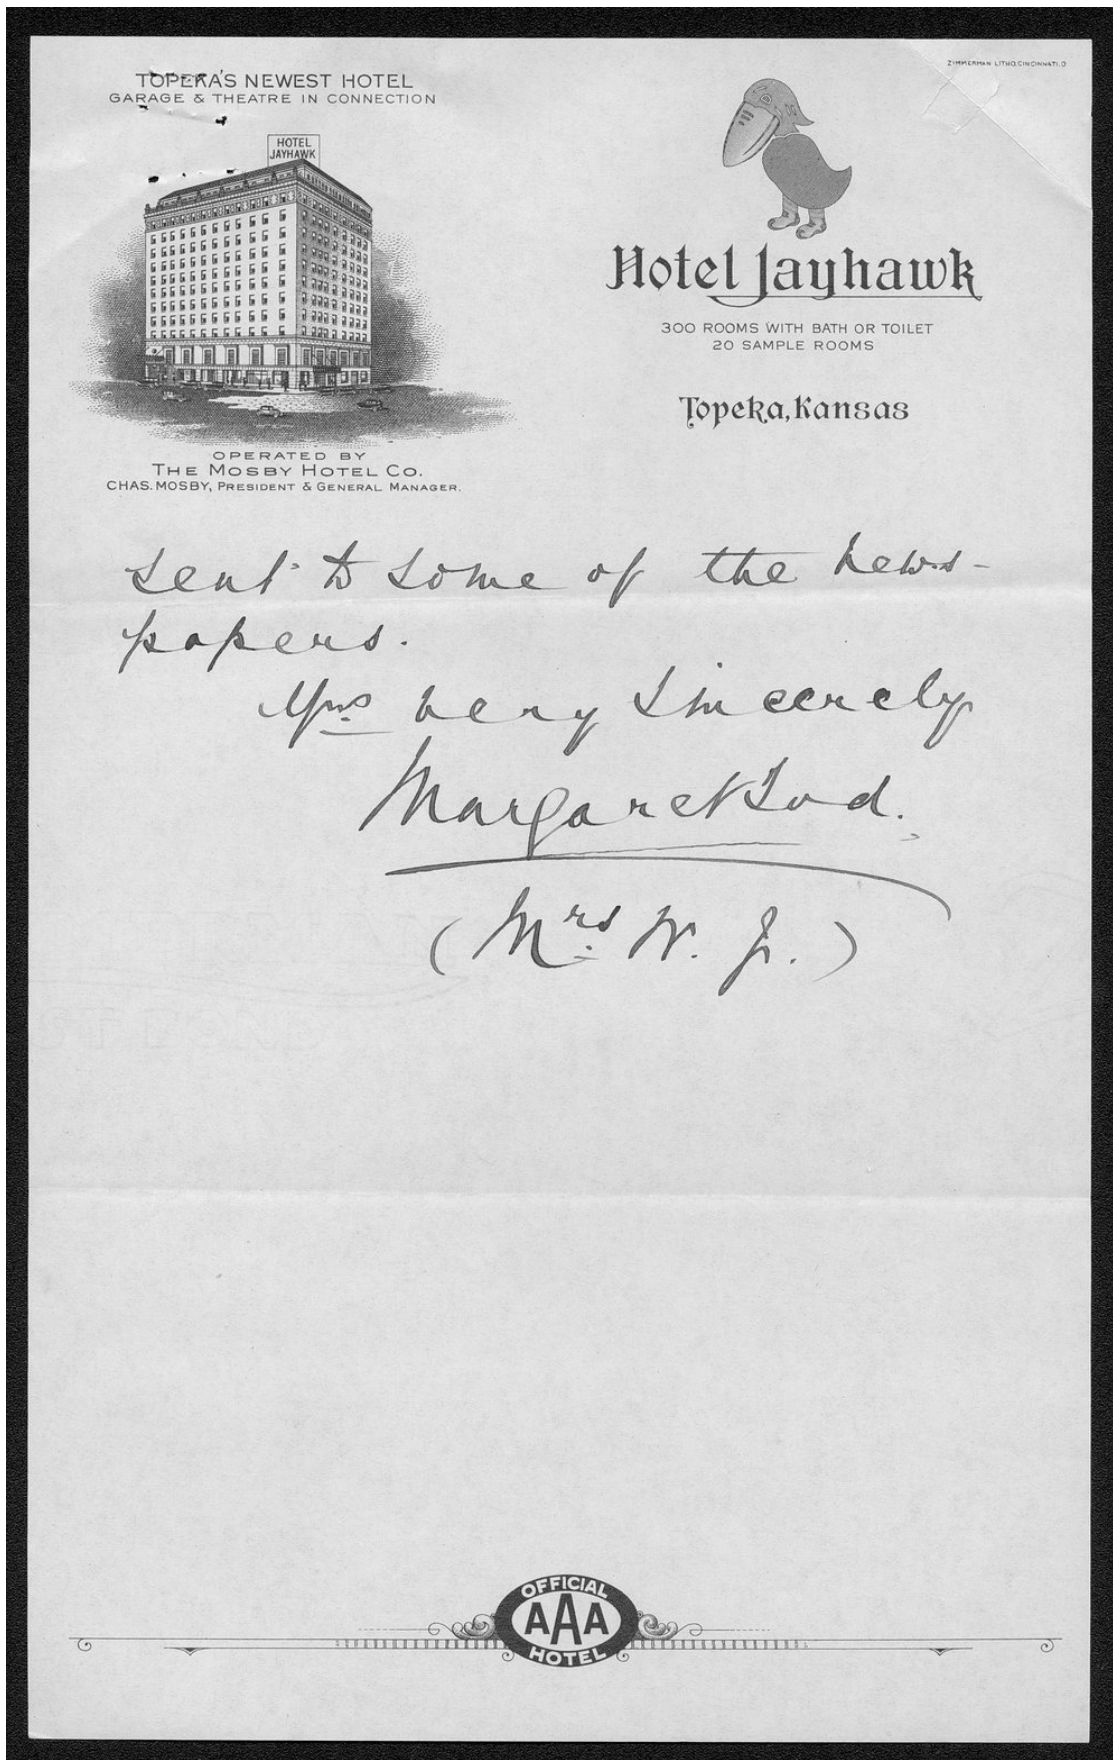 TOPEKA'S NEWEST HOTEL
GARAGE & THEATRE IN CONNECTION
HOTEL
JAYHAWK
OPERATED BY
THE MOSBY HOTEL CO.
CHAS. MOSBY, PRESIDENT & GENERAL MANAGER.
ZIMMERMAN LITHO. CINCINNATI, O
Hotel Jayhawk
300 ROOMS WITH BATH OR TOILET
20 SAMPLE ROOMS
Topeka, Kansas
sent to some of the news-
papers.
Yrs very sincerely
Margaret Tod.
(Mrs. W. J.)
OFFICIAL
AAA
HOTEL